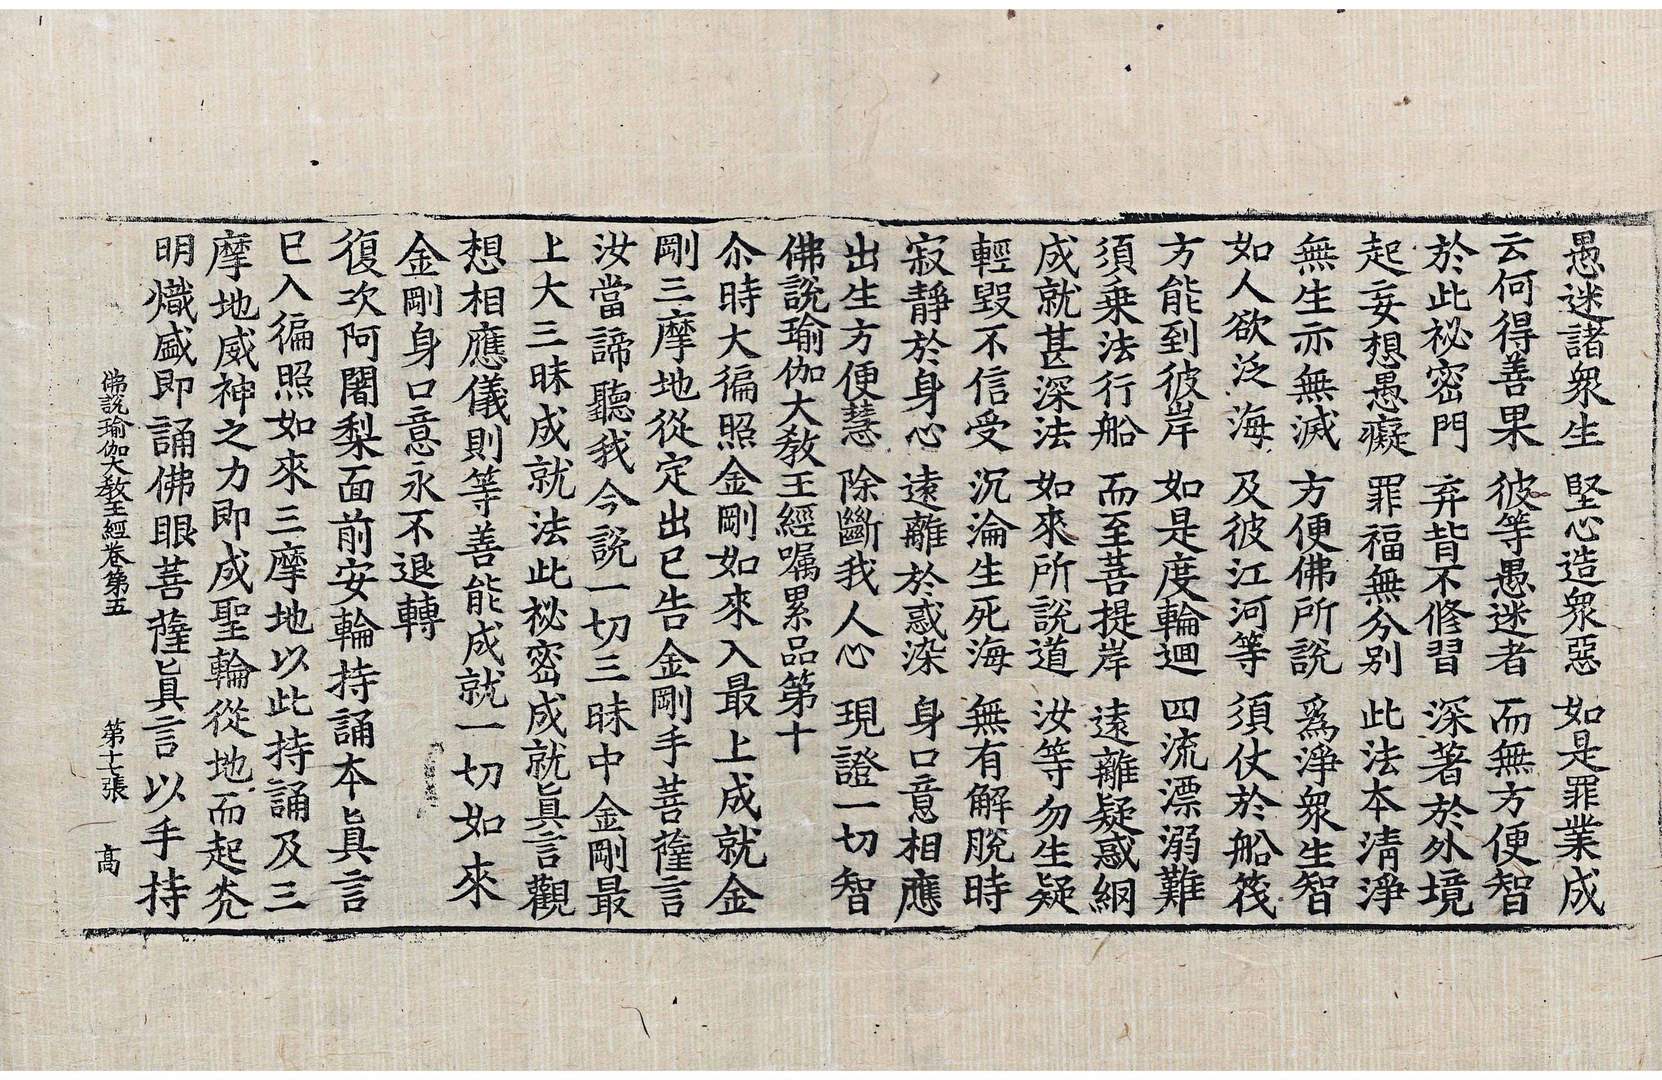 愚迷諸衆生　堅心造衆惡　如是罪業成
云何得善果　彼等愚迷者　而無方便智
於此祕密門　弃背不修習　深著於外境
起妄想愚癡　罪福無分别　此法本清淨
無生亦無滅　方便佛所說　爲淨衆生智
如人欲泛海　及彼江河等　須仗於船筏
方能到彼岸　如是度輪迴　四流漂溺難
須乗法行船　而至菩提岸　遠離疑惑網
成就甚深法　如來所說道　汝等勿生疑
輕毀不信受　沉淪生死海　無有解脫時
寂靜於身心　遠離於惑染　身口意相應
出生方便慧　除斷我人心　現證一切智
佛說瑜伽大教王經囑累品第十
尒時大徧照金剛如來入最上成就金
剛三摩地從定出已告金剛手菩薩言
汝當諦聽我今說一切三昧中金剛最
上大三昧成就法此祕密成就眞言觀
想相應儀則等善能成就一切如來
金剛身口意永不退轉
復次阿闍梨面前安輪持誦本眞言
已入徧照如來三摩地以此持誦及三
摩地威神之力即成聖輪從地而起炎
明熾盛即誦佛眼菩薩眞言以手持
佛說瑜伽大教王經卷第五　第十七張　高